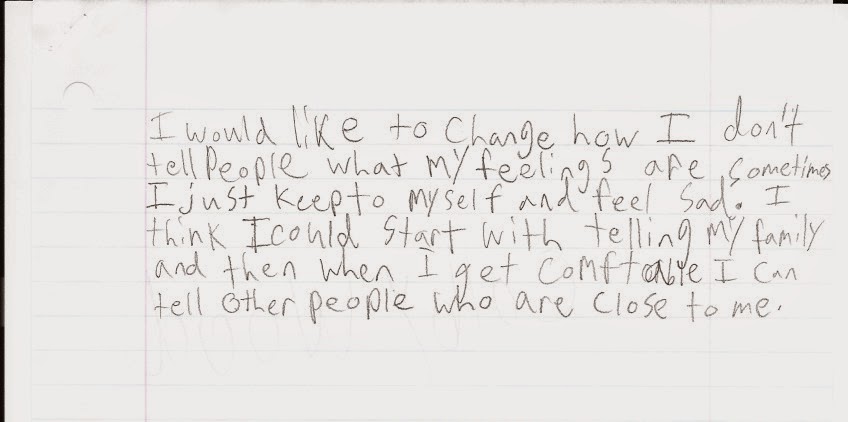 I would like to change how I don't
tell people what my feelings are sometimes
I just keep to myself and feel sad. I
think I could start with telling my family
and then when I get comftorable I can
tell other people who are close to me.